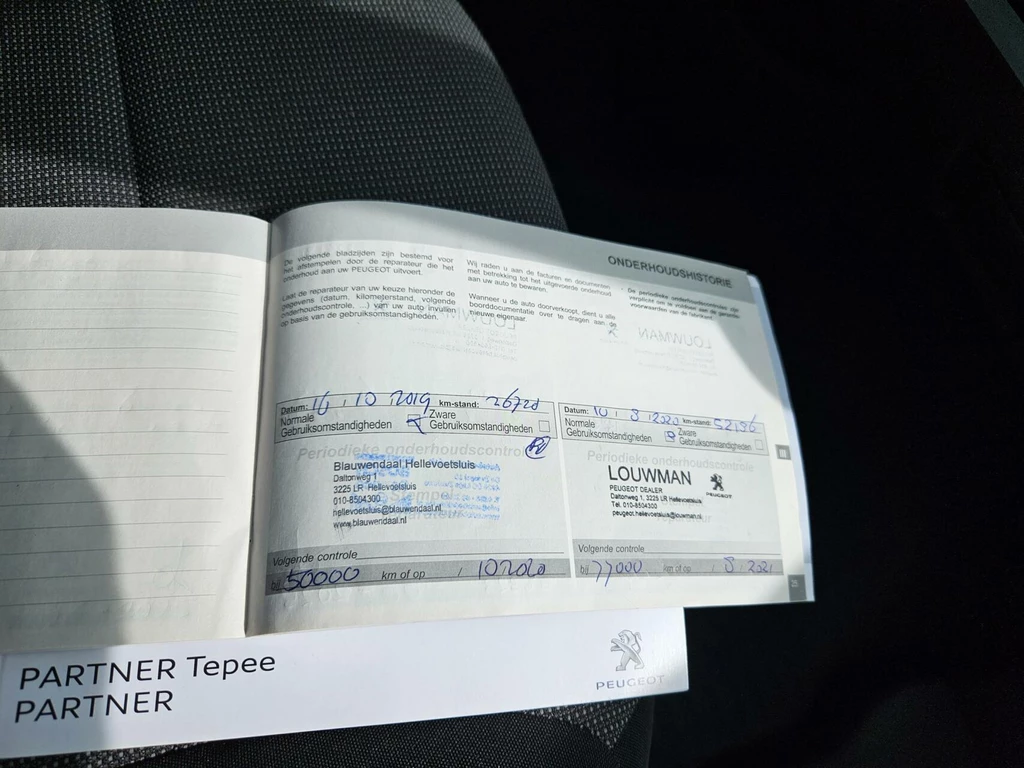 ONDERHOUDSHISTORIE
De volgende bladzijden zijn bestemd voor
het afstempelen door de reparateur die het
onderhoud aan uw PEUGEOT uitvoert.
Laat de reparateur van uw keuze hieronder de
gegevens (datum, kilometerstand, volgende
onderhoudscontrole, ...) van uw auto invullen
op basis van de gebruiksomstandigheden.
Wij raden u aan de facturen en documenten
met betrekking tot het uitgevoerde onderhoud
aan uw auto te bewaren.
Wanneer u de auto doorverkoopt, dient u alle
boorddocumentatie over te dragen aan de
nieuwe eigenaar.
De periodieke onderhoudscontroles zijn
verplicht om te voldoen aan de garantie-
voorwaarden van de fabrikant.
LOUWMAN
LOUWMAN
Datum: 16 / 10 2019 km-stand: 26720
Normale Gebruiksomstandigheden
Zware Gebruiksomstandigheden
Periodieke onderhoudscontrole
Blauwendaal Hellevoetsluis
Daltonweg 1
3225 LR Hellevoetsluis
010-8504300
hellevoetsluis@blauwendaal.nl
www.blauwendaal.nl
Stempel
Volgende controle
bij 50000 km of op / 10 2020
Datum: 10 / 8 / 2020 km-stand: 52186
Normale Gebruiksomstandigheden
Zware Gebruiksomstandigheden
Periodieke onderhoudscontrole
LOUWMAN
PEUGEOT DEALER
PEUGEOT
Daltonweg 1, 3225 LR Hellevoetsluis
Tel. 010-8504300
peugeot.hellevoetsluis@louwman.nl
Volgende controle
bij 77000 km of op / 8 2021
PARTNER Tepee
PARTNER
PEUGEOT